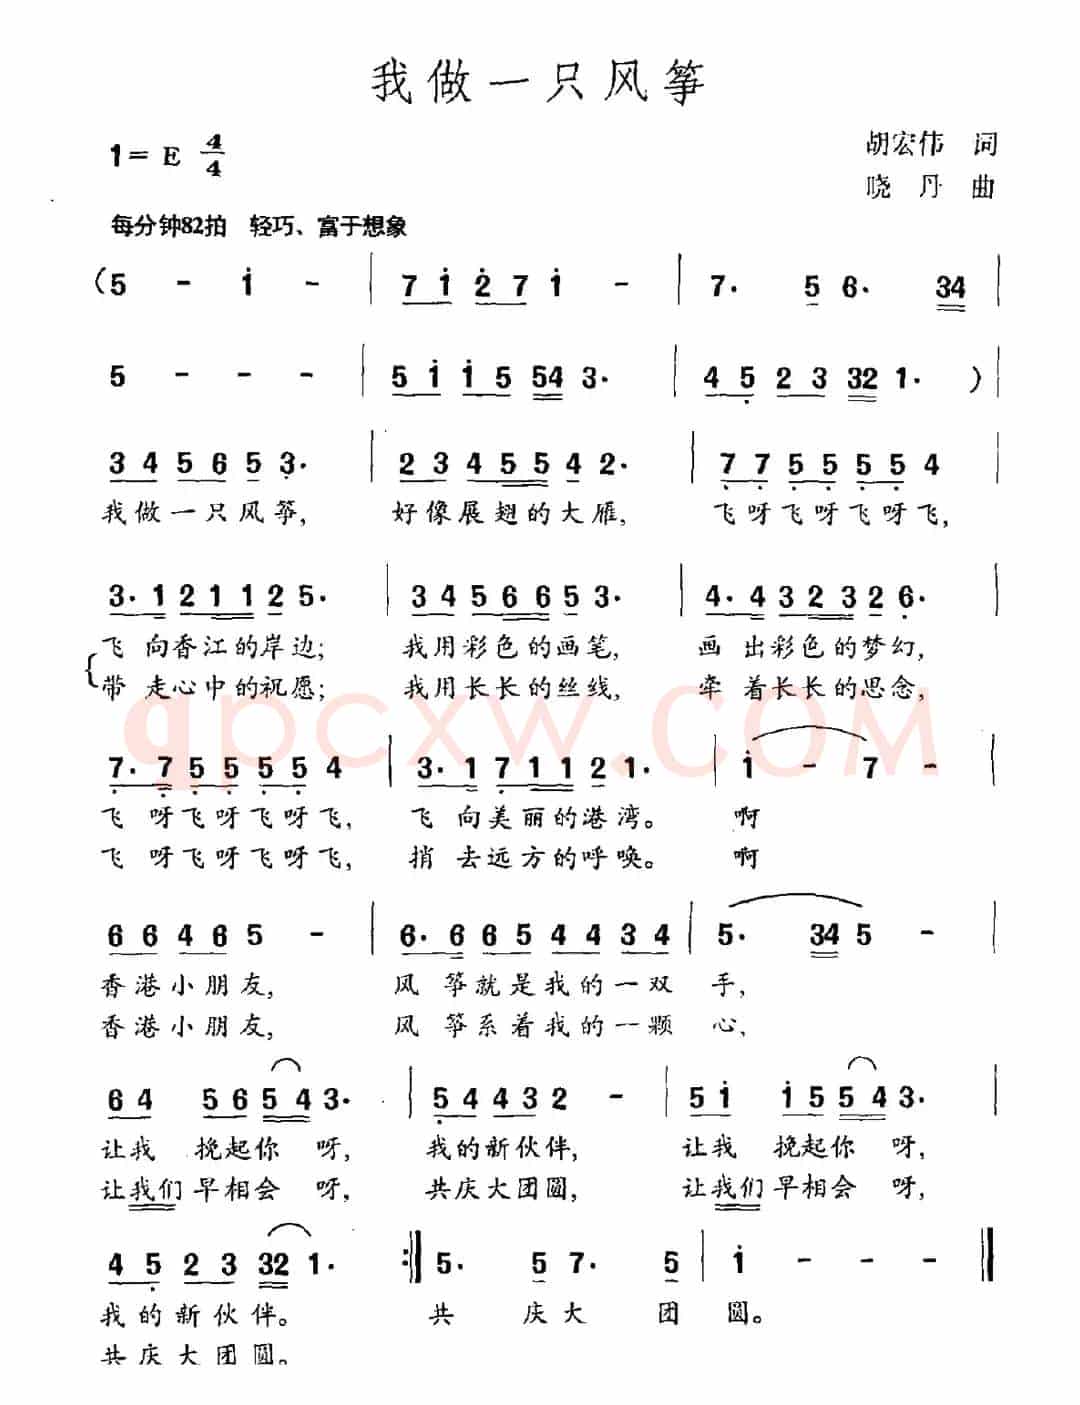 我做一只风筝
1= E 4/4
胡宏伟 词
晓丹 曲
每分钟82拍 轻巧、富于想象
(5 - i - | 7 i 2 7 i - | 7. 5 6. 34 |
5 - - - | 5 i i 5 54 3. | 4 5 2 3 32 1. ) |
3 4 5 6 5 3. | 2 3 4 5 5 4 2. | 7 7 5 5 5 5 4
我做一只风筝, 好像展翅的大雁, 飞呀飞呀飞呀飞,
3. 1 2 1 1 2 5. | 3 4 5 6 6 5 3. | 4. 4 3 2 3 2 6. |
飞 向香江的岸边; 我用彩色的画笔, 画 出彩色的梦幻,
带 走心中的祝愿; 我用长长的丝线, 牵 着长长的思念,
qpcxw.COM
7. 7 5 5 5 5 4 | 3. 1 7 1 1 2 1. | i - 7 - |
飞 呀飞呀飞呀飞, 飞 向美丽的港湾。 啊
飞 呀飞呀飞呀飞, 捎 去远方的呼唤。 啊
6 6 4 6 5 - | 6. 6 6 5 4 4 3 4 | 5. 34 5 - |
香港小朋友, 风 筝就是我的一双 手,
香港小朋友, 风 筝系着我的一颗 心,
6 4 5 6 5 4 3. | 5 4 4 3 2 - | 5 i i 5 5 4 3. |
让我 挽起你 呀, 我的新伙伴, 让我 挽起你 呀,
让我们 早相会 呀, 共庆大团圆, 让我们 早相会 呀,
4 5 2 3 32 1. :‖ 5. 5 7. 5 | i - - - ‖
我的新伙伴。 共 庆大 团 圆。
共庆大团圆。